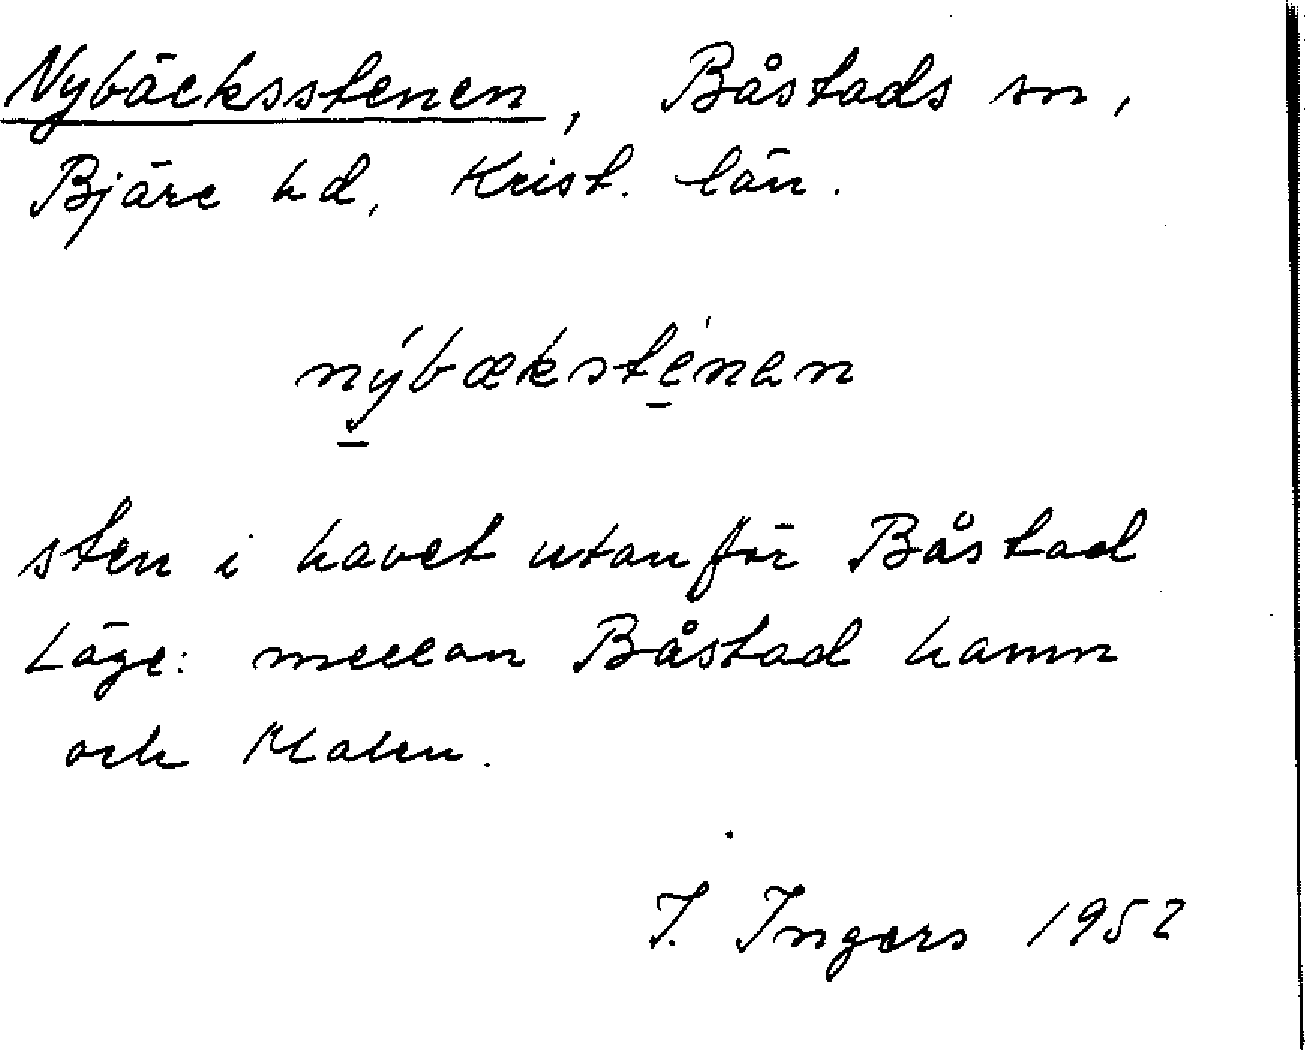 Nybäcksstenen, Båstads sn,
Bjäre hd, Krist. län.
nýbæksténan
sten i havet utanför Båstad
Läge: mellan Båstad hamn
och Malen.
I. Ingers 1952